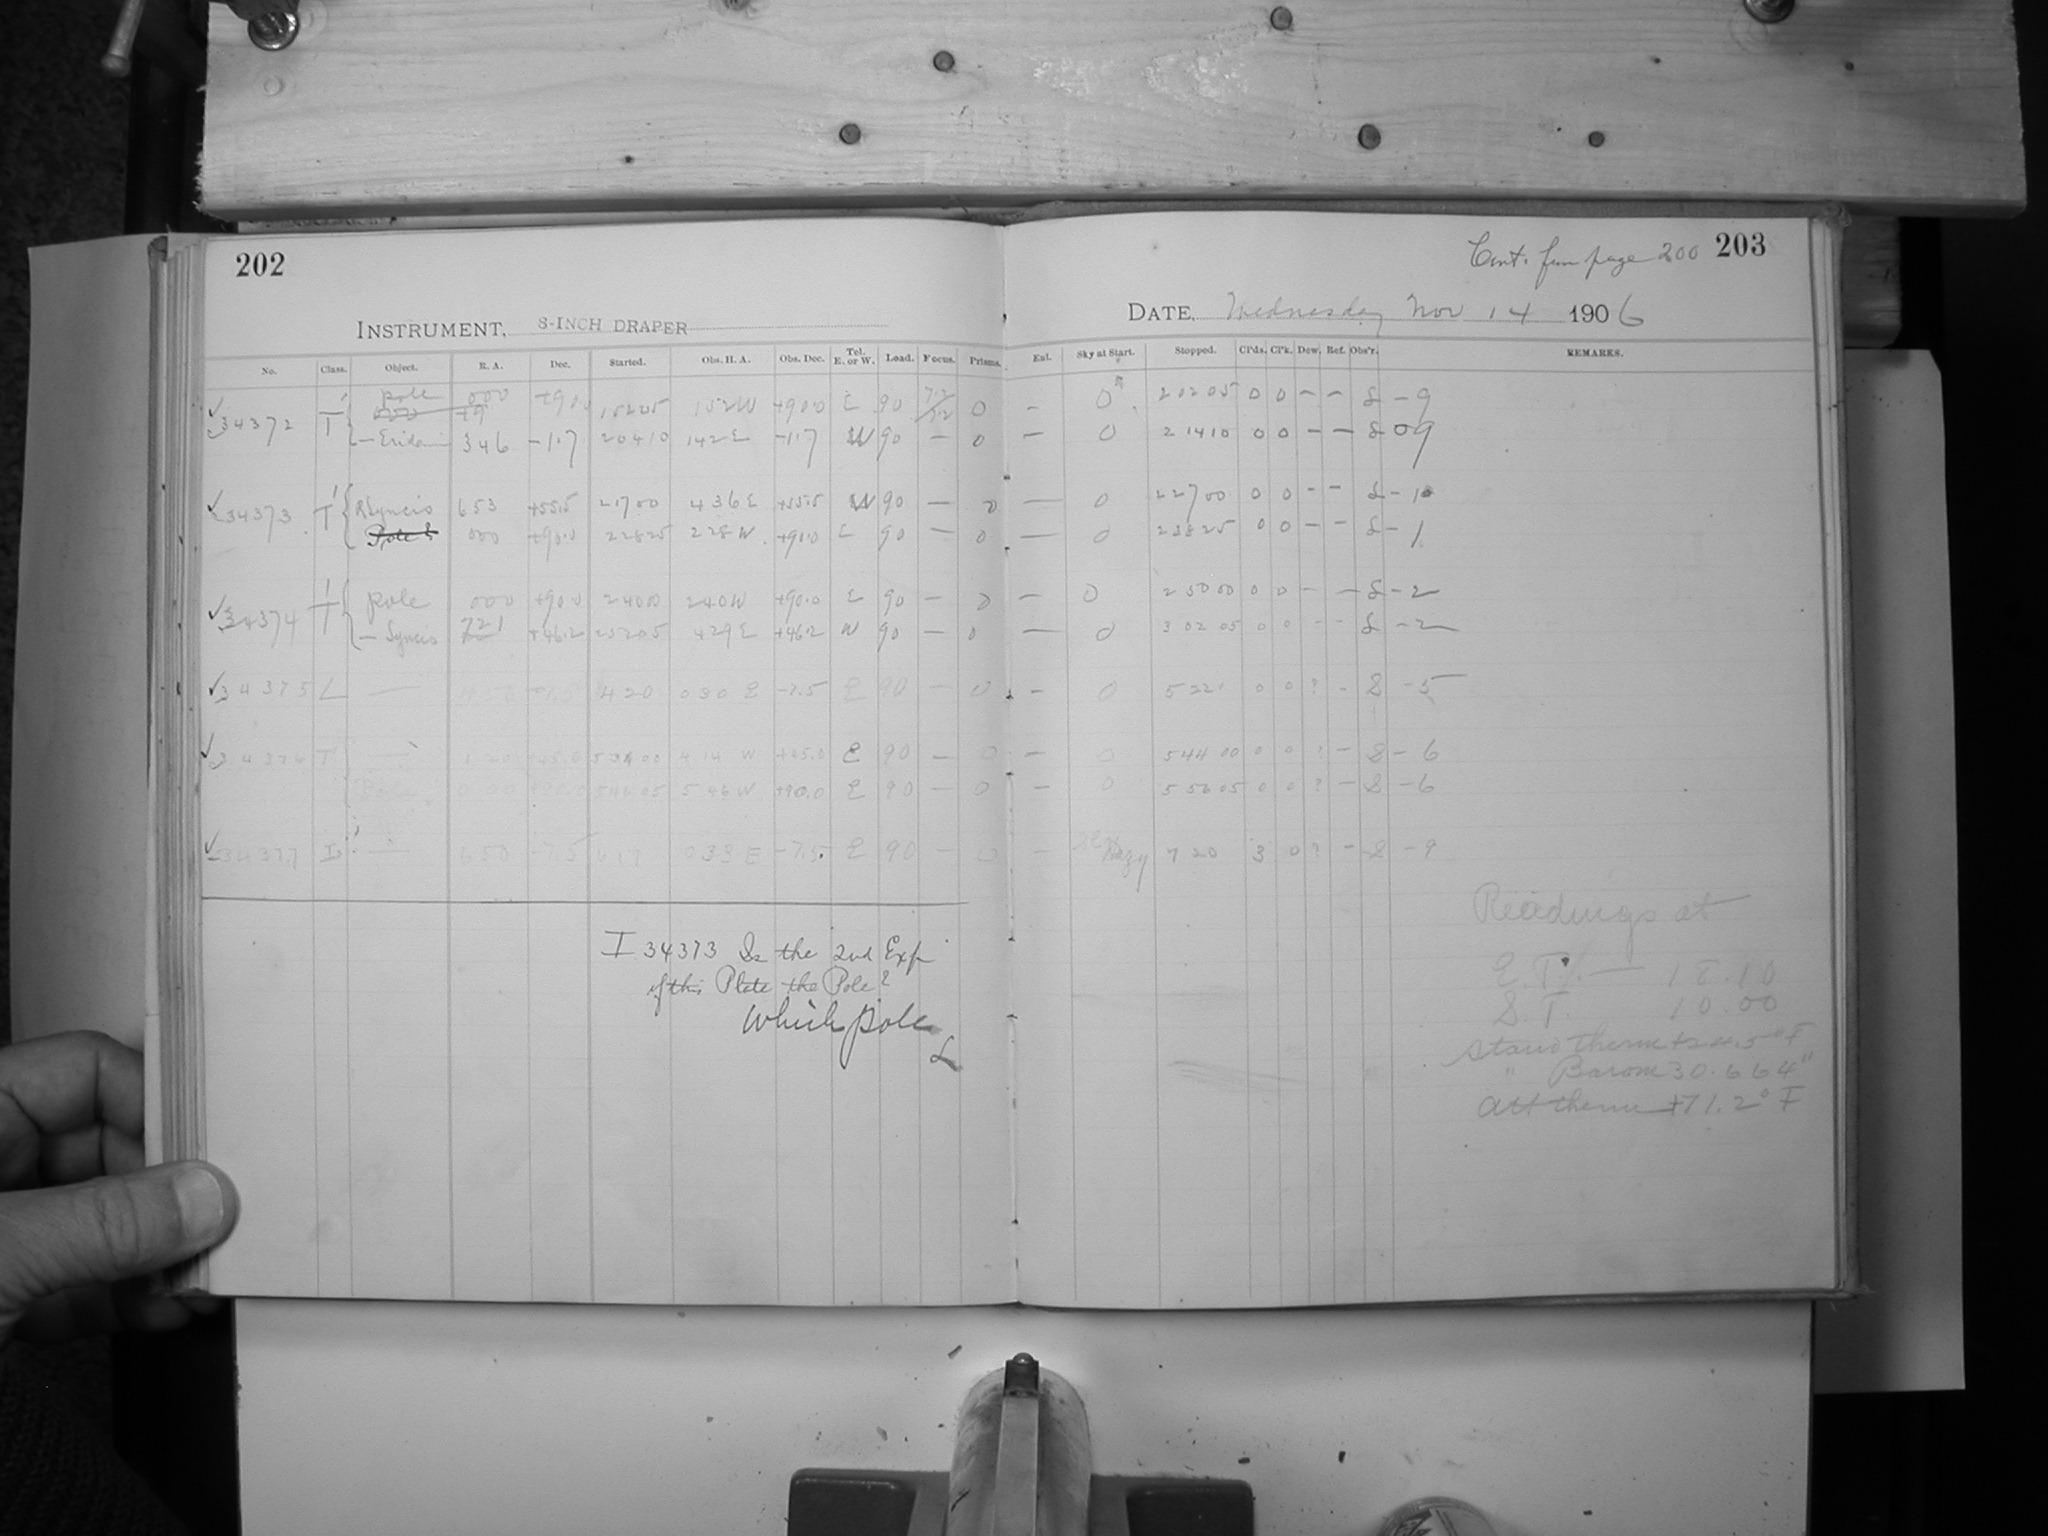 202
INSTRUMENT, 8-INCH DRAPER
No. Class. Object. R. A. Dec. Started. Obs. H. A. Obs. Dec. Tel. E. or W. Load. Focus. Prisms.
34372 T' Pole 000 +90.0 15205 152W +90.0 E 90 0
— Eridani 346 -1.7 20410 142E -1.7 W 90 — 0
34373 T' R Lyncis 653 +55.5 21700 436E +55.5 W 90 — 0
000 +90.0 22825 228W +90.0 E 90 — 0
34374 T' Pole 000 +90.0 24000 240W +90.0 E 90 — 0
— Lyncis 721 +46.2 25205 429E +46.2 W 90 — 0
34375 L — -7.5 420 030 E -7.5 E 90 — 0
34376 T' — 414 W E 90 — 0
Pole 54605 546W +90.0 E 90 — 0
34377 — 650 -7.5 617 033 E -7.5 E 90 — 0
I 34373 Is the 2nd Exp
of this Plate the Pole?
Which pole
L
Cont. from page 200 203
DATE, Wednesday Nov 14 1906
Ext. Sky at Start. Stopped. Cl'ds. Cl'k. Dew. Ref. Obs'r. REMARKS.
- 0 20205 0 0 - - L - 9
— 0 21410 0 0 - - L 09
— 0 22700 0 0 - - L - 10
— 0 23825 0 0 - - L - 1
- 0 25000 0 0 - - L - 2
— 0 30205 0 0 - - L - 2
- 0 522 0 0 ? - S - 5
- 0 54400 0 0 ? - S - 6
- 0 55605 0 0 ? - S - 6
- Hazy 720 3 0 ? - S - 9
Readings at
E.T. — 18.10
S.T. 10.00
Stand therm +24.5° F
" Barom 30.664"
Att therm +71.2° F